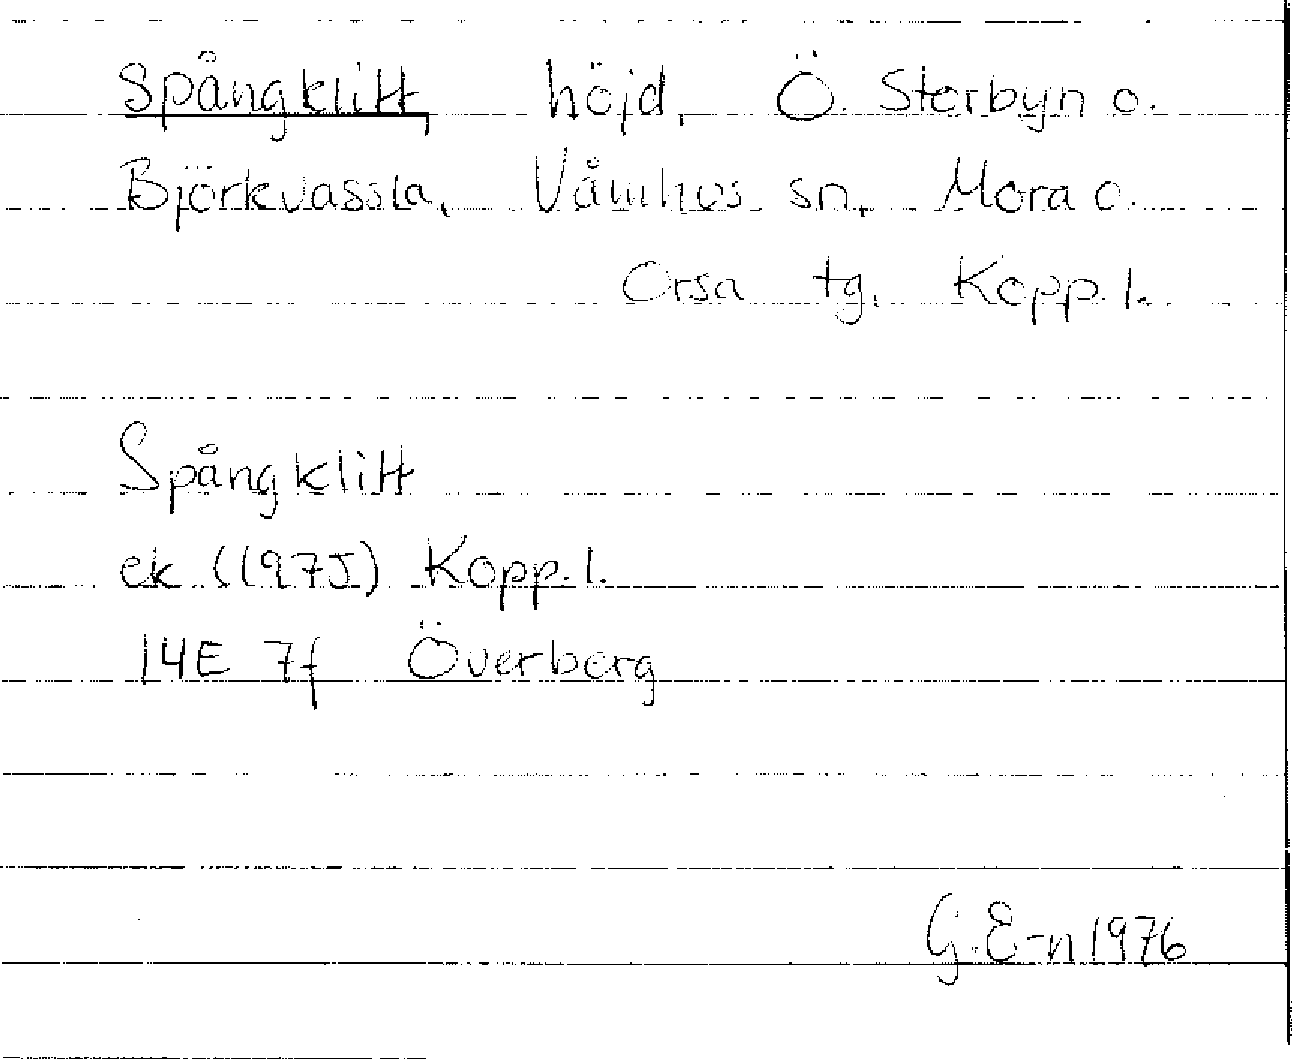 Spångklitt, höjd, Ö. Storbyn o.
Björkvassla, Våmhus sn, Mora o.
Orsa tg. Kopp. l.
Spångklitt
ek (1975) Kopp. l.
14E 7f Överberg
G. E-n 1976